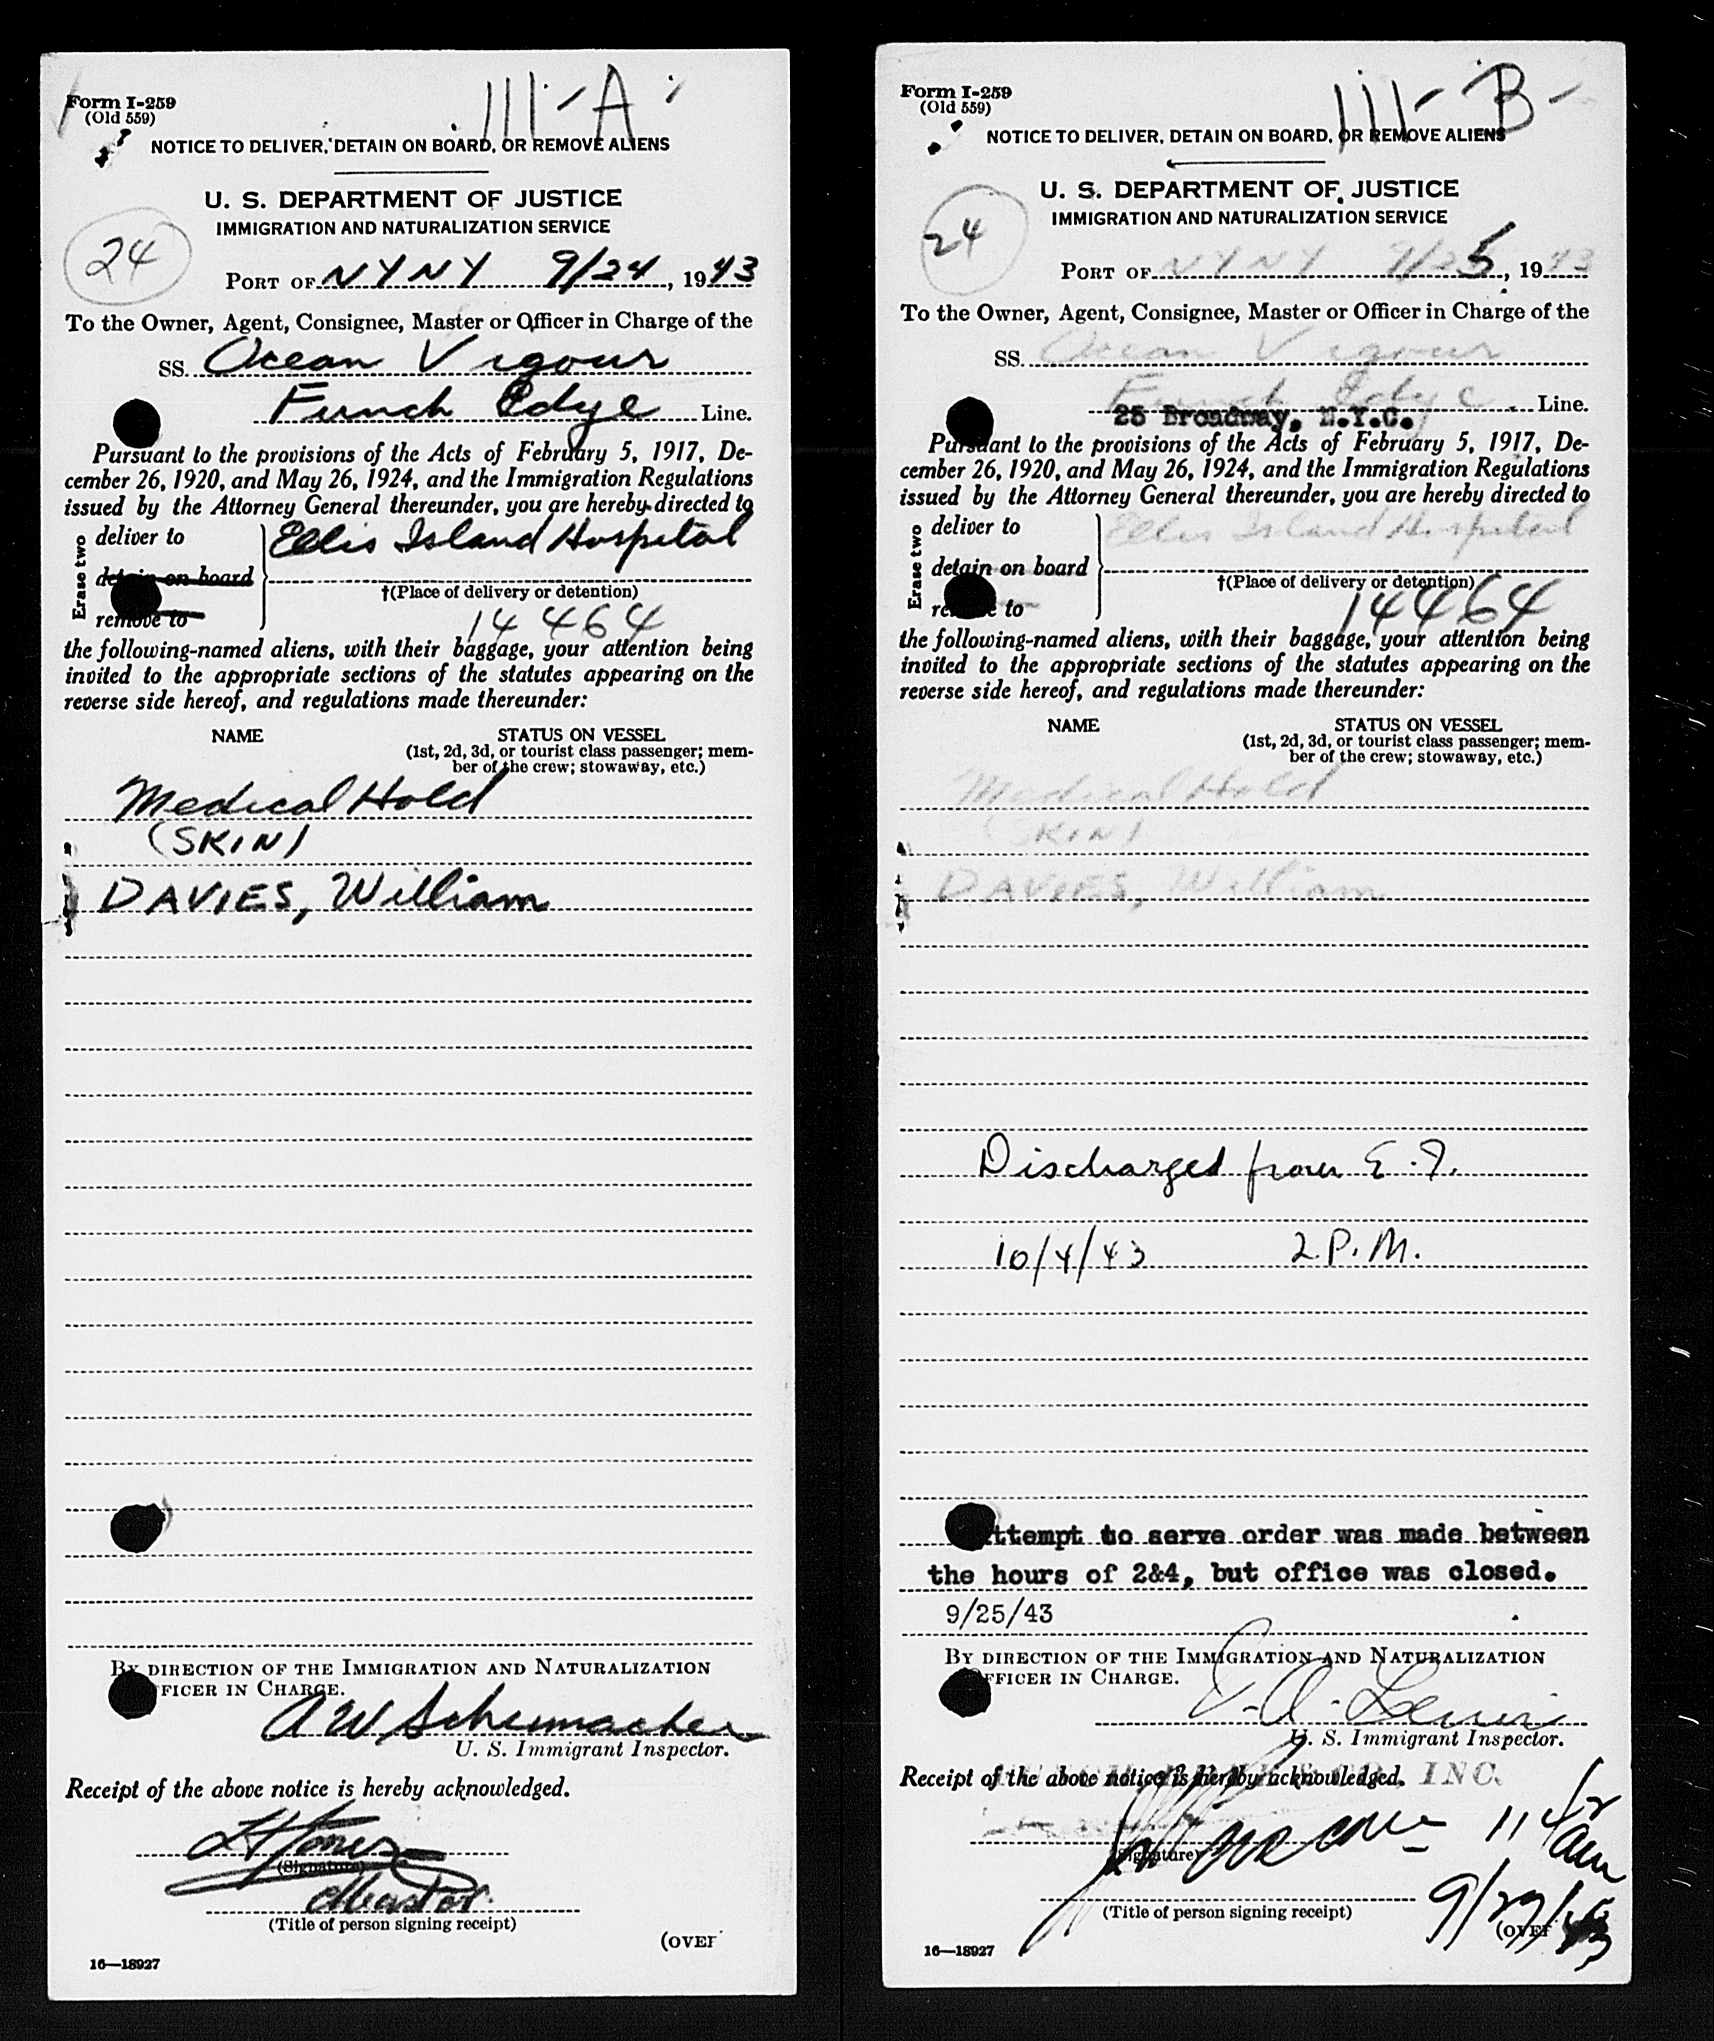 111-A
Form I-259
(Old 559)
NOTICE TO DELIVER, DETAIN ON BOARD, OR REMOVE ALIENS
U. S. DEPARTMENT OF JUSTICE
IMMIGRATION AND NATURALIZATION SERVICE
24
PORT OF N Y N Y 9/24, 1943
To the Owner, Agent, Consignee, Master or Officer in Charge of the
SS. Ocean Vigour
Funch Edye Line.
Pursuant to the provisions of the Acts of February 5, 1917, De-
cember 26, 1920, and May 26, 1924, and the Immigration Regulations
issued by the Attorney General thereunder, you are hereby directed to
Erase two
deliver to Ellis Island Hospital
detain on board
†(Place of delivery or detention)
remove to
14464
the following-named aliens, with their baggage, your attention being
invited to the appropriate sections of the statutes appearing on the
reverse side hereof, and regulations made thereunder:
NAME STATUS ON VESSEL
(1st, 2d, 3d, or tourist class passenger; mem-
ber of the crew; stowaway, etc.)
Medical Hold
(SKIN)
DAVIES, William
BY DIRECTION OF THE IMMIGRATION AND NATURALIZATION
FICER IN CHARGE.
A W Schumacher
U. S. Immigrant Inspector.
Receipt of the above notice is hereby acknowledged.
Jones
(Signature)
Master
(Title of person signing receipt)
(OVER
16—18927
111-B-
Form I-259
(Old 559)
NOTICE TO DELIVER, DETAIN ON BOARD, OR REMOVE ALIENS
U. S. DEPARTMENT OF JUSTICE
IMMIGRATION AND NATURALIZATION SERVICE
24
PORT OF N Y N Y 9/25, 1943
To the Owner, Agent, Consignee, Master or Officer in Charge of the
SS. Ocean Vigour
Funch Edye Line.
25 Broadway, N.Y.C.
Pursuant to the provisions of the Acts of February 5, 1917, De-
cember 26, 1920, and May 26, 1924, and the Immigration Regulations
issued by the Attorney General thereunder, you are hereby directed to
Erase two
deliver to Ellis Island Hospital
detain on board
†(Place of delivery or detention)
remove to
14464
the following-named aliens, with their baggage, your attention being
invited to the appropriate sections of the statutes appearing on the
reverse side hereof, and regulations made thereunder:
NAME STATUS ON VESSEL
(1st, 2d, 3d, or tourist class passenger; mem-
ber of the crew; stowaway, etc.)
Medical Hold
(SKIN)
DAVIES, William
Discharged from E.I.
10/4/43 2 P.M.
ttempt to serve order was made between
the hours of 2&4, but office was closed.
9/25/43
BY DIRECTION OF THE IMMIGRATION AND NATURALIZATION
FFICER IN CHARGE.
U. S. Immigrant Inspector.
Receipt of the above notice is hereby acknowledged. INC.
(Signature)
(Title of person signing receipt)
9/27/43
(OVER
16—18927